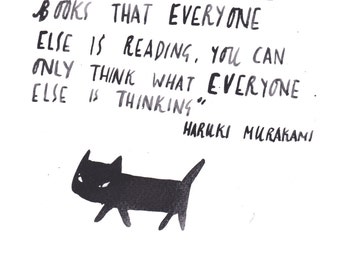 BOOKS THAT EVERYONE
ELSE IS READING, YOU CAN
ONLY THINK WHAT EVERYONE
ELSE IS THINKING"
HARUKI MURAKAMI